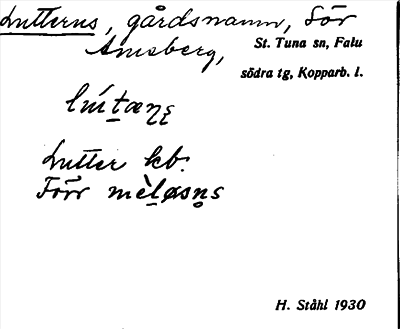 Lutterns, gårdsnamn, Sör
Amsberg, St. Tuna sn, Falu
södra tg, Kopparb. l.
Lutter kb.
Förr
H. Ståhl 1930